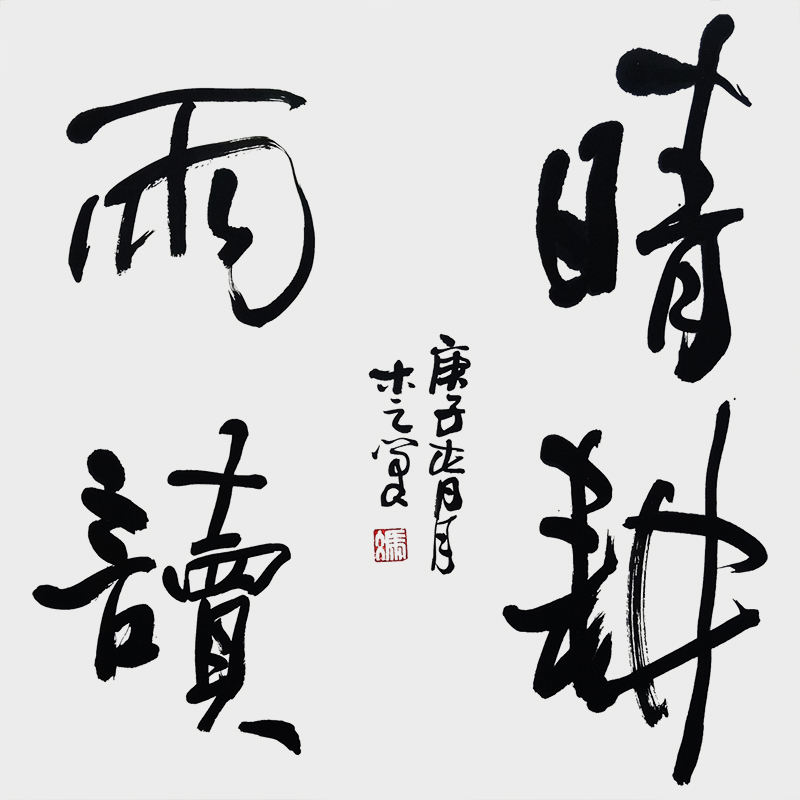 晴耕
雨讀
庚子春月
木之